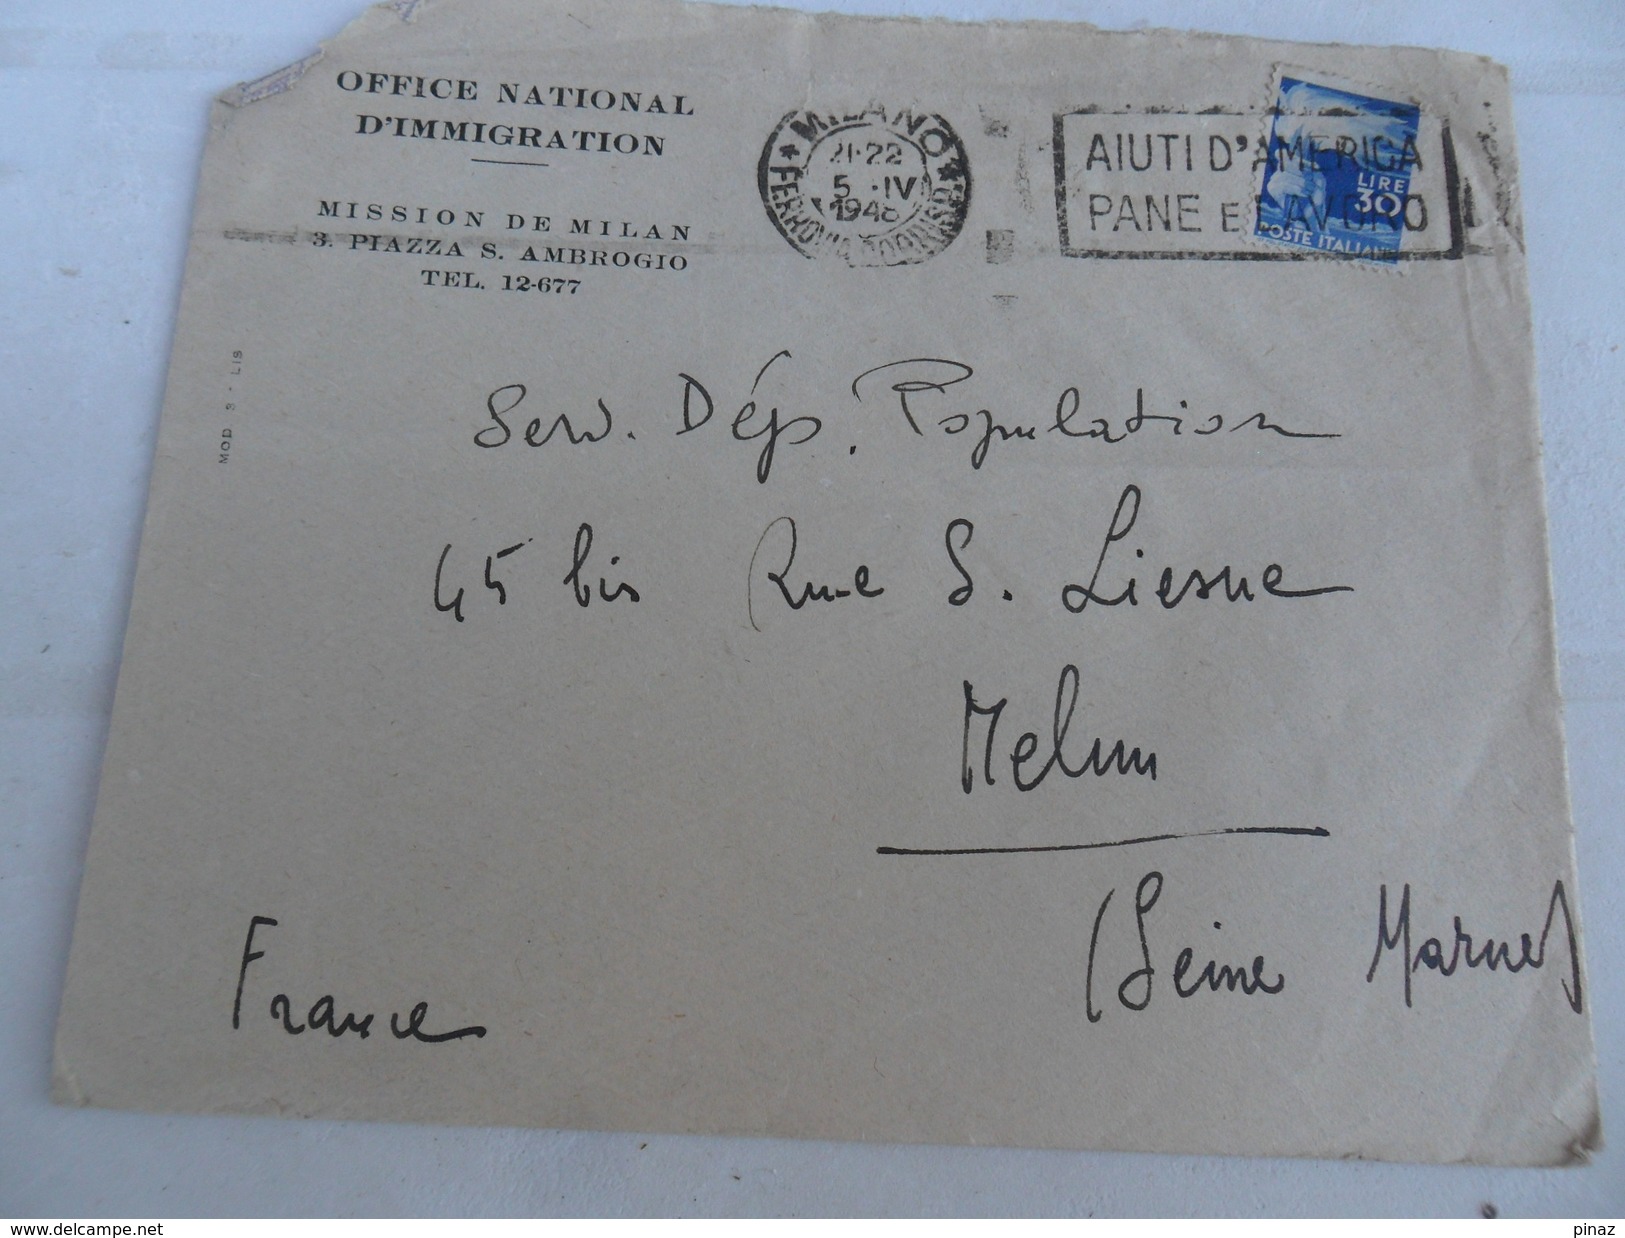 OFFICE NATIONAL
D'IMMIGRATION
MISSION DE MILAN
3. PIAZZA S. AMBROGIO
TEL. 12-677
MOD 3 - LIS
MILANO
21-22
5 · IV
1948
FERROVIA CORRISP.
AIUTI D'AMERICA
PANE E LAVORO
LIRE
30
POSTE ITALIANE
Serv. Dép. Population
45 bis Rue S. Liesne
Melun
(Seine Marne)
France
www.delcampe.net
pinaz